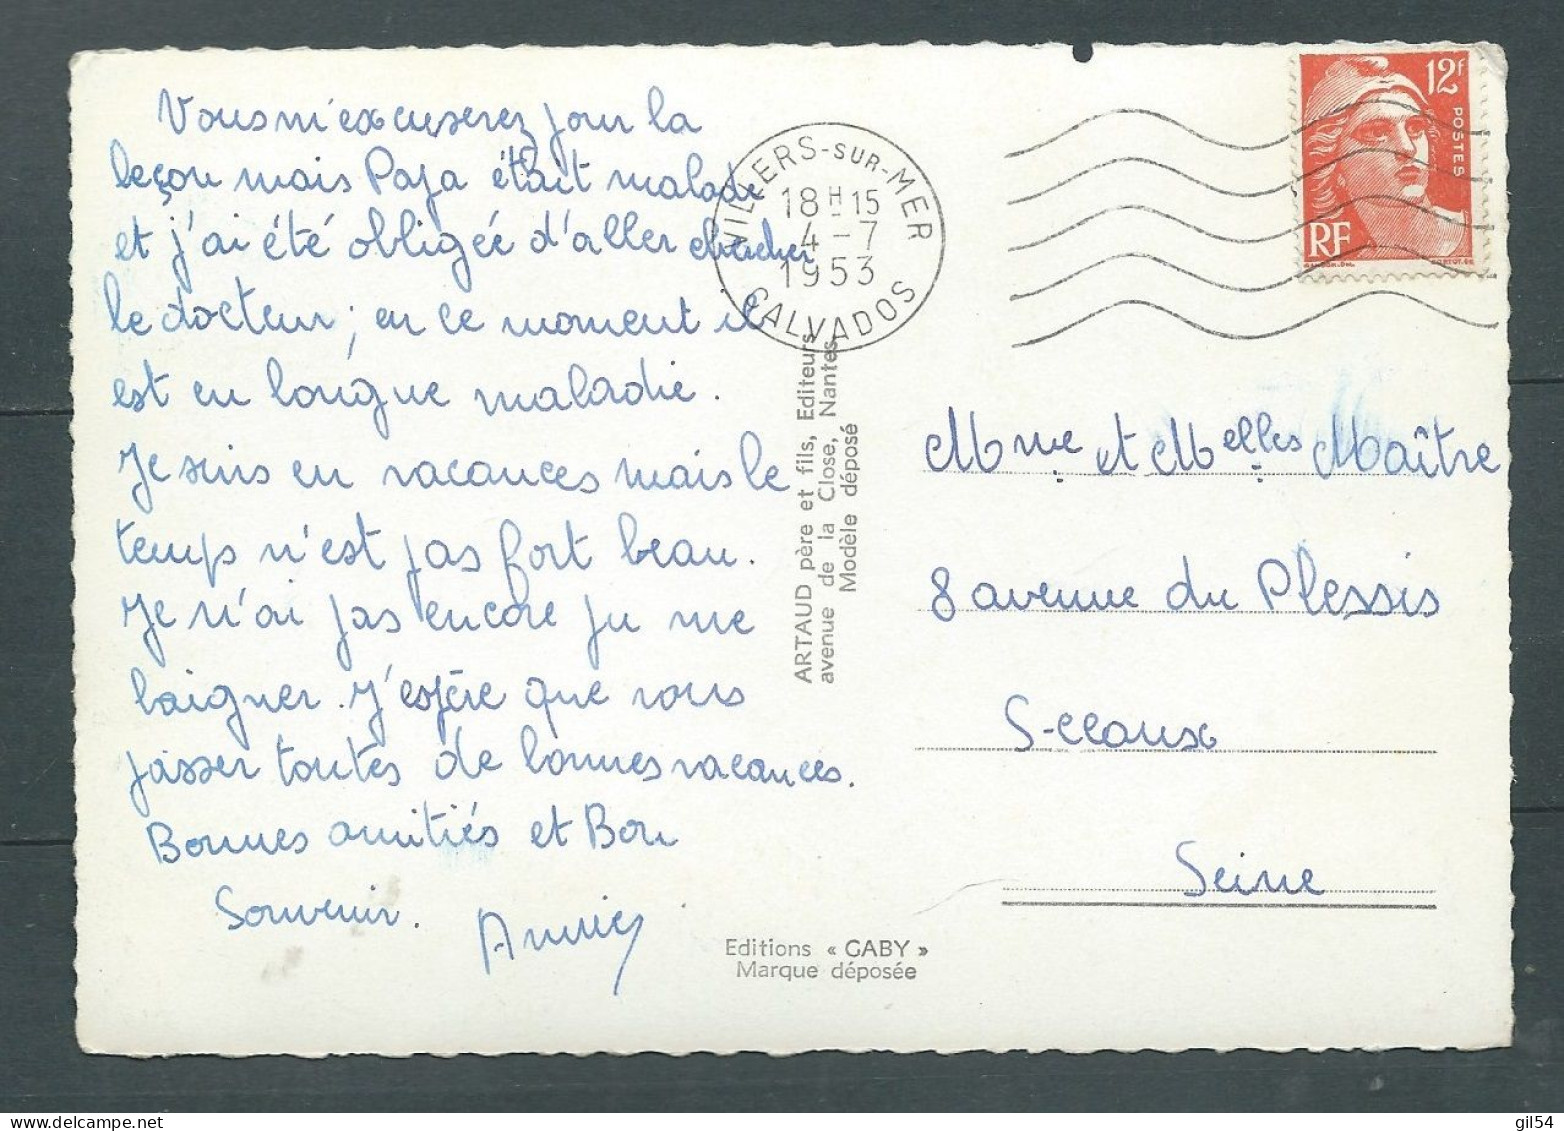 Vous m'excuserez pour la
leçon mais Papa était malade
et j'ai été obligée d'aller chercher
le docteur; en ce moment il
est en longue maladie.
Je suis en vacances mais le
temps n'est pas fort beau.
Je n'ai pas encore pu me
baigner. J'espère que vous
passer toutes de bonnes vacances.
Bonnes amitiés et Bon
Souvenir.
Annie
VILLERS-SUR-MER
18H15
4-7
1953
CALVADOS
12f
POSTES
RF
ARTAUD père et fils, Editeurs
avenue de la Close, Nantes
Modèle déposé
Mme et Melles Maître
8 avenue du Plessis
Sceaux
Seine
Editions « GABY »
Marque déposée
gil54